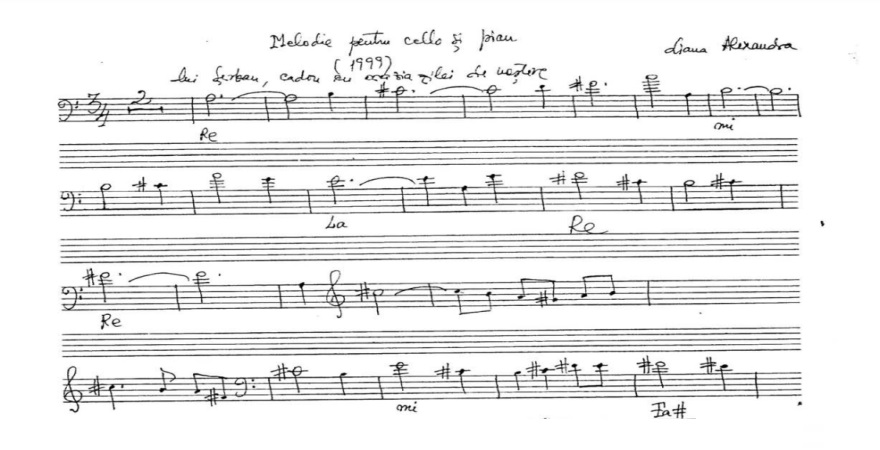 Melodie pentru cello și pian
(1999)
Liana Alexandra
lui Șerban, cadou cu ocazia zilei de naștere
3/4 2
Re mi
La Re
Re
mi Fa#